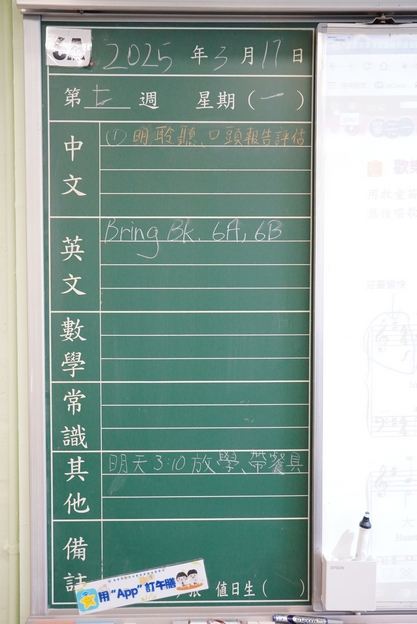 6A
2025年3月17日
第七週 星期(一)
中文
(1) 明聆聽、口頭報告評估
英文
Bring Bk. 6A, 6B
數學
常識
其他
明天3:10放學、帶餐具
備註
用“App”訂午膳
值日生( )